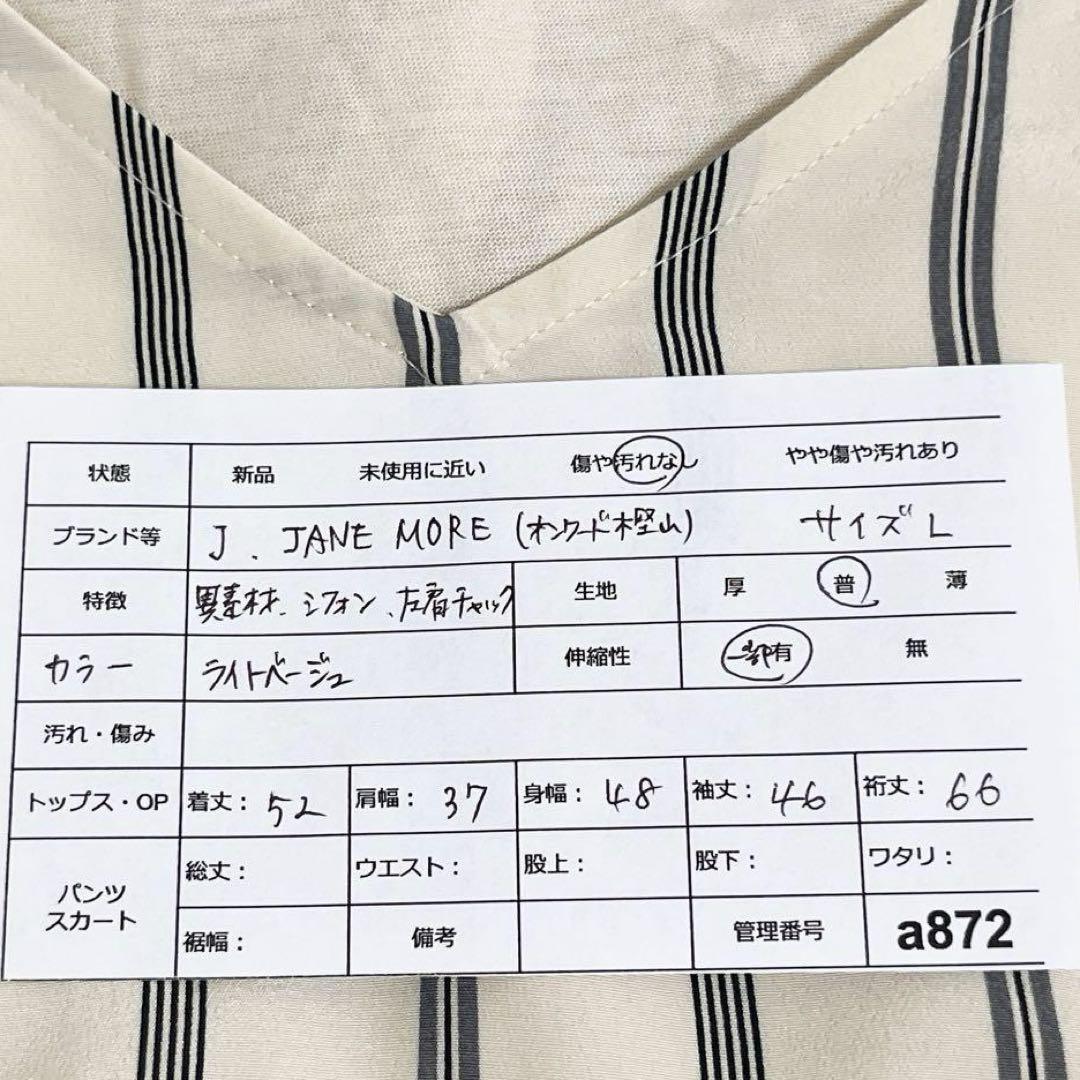 状態 新品 未使用に近い 傷や汚れなし やや傷や汚れあり
ブランド等 J. JANE MORE (オンワード樫山) サイズ L
特徴 異素材、シフォン、左肩チャック 生地 厚 普 薄
カラー ライトベージュ 伸縮性 一部有 無
汚れ・傷み
トップス・OP 着丈: 52 肩幅: 37 身幅: 48 袖丈: 46 裄丈: 66
パンツ スカート 総丈: ウエスト: 股上: 股下: ワタリ:
裾幅: 備考 管理番号 a872